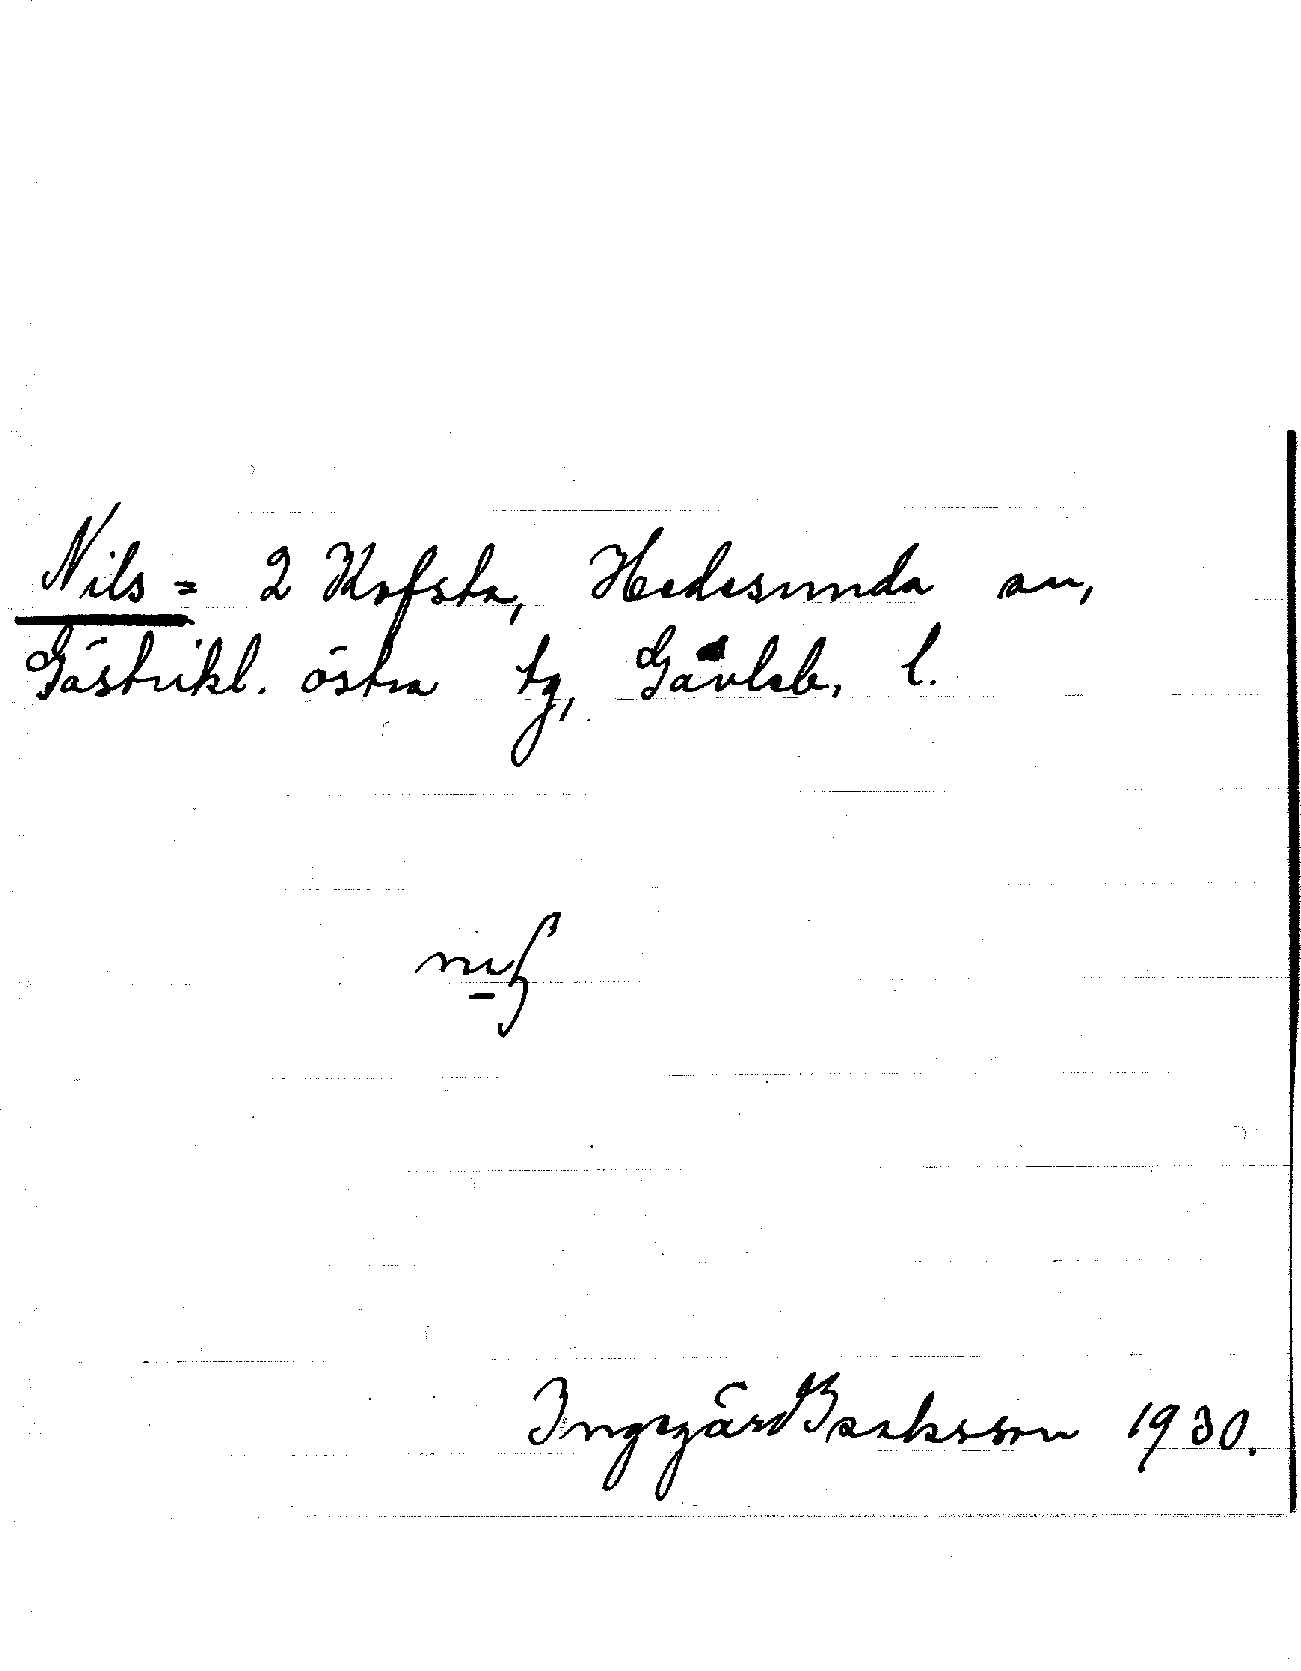 Nils = 2 Kofsta, Hedesunda sn,
Gästrikl. östra tg, Gävleb. l.
Ingegärd Isaksson 1930.